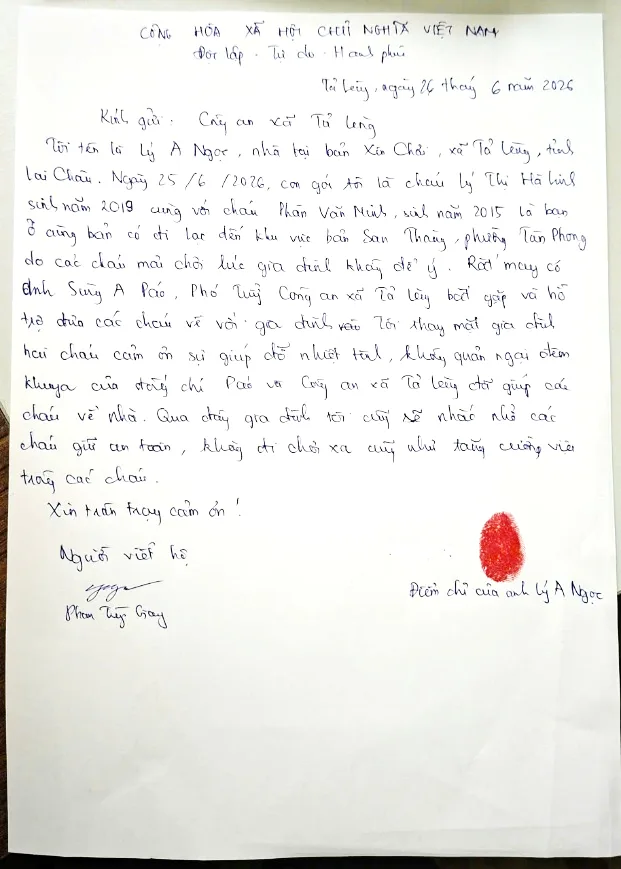 CỘNG HÒA XÃ HỘI CHỦ NGHĨA VIỆT NAM
Độc lập - Tự do - Hạnh phúc
Tả Lèng, ngày 26 tháng 6 năm 2026
Kính gửi: Công an xã Tả Lèng
Tôi tên là Lý A Ngọc, nhà tại bản Xin Chải, xã Tả Lèng, tỉnh
Lai Châu. Ngày 25/6/2026, con gái tôi là cháu Lý Thị Hà Linh
sinh năm 2019 cùng với cháu Phàn Văn Minh, sinh năm 2015 là bạn
ở cùng bản có đi lạc đến khu vực bản San Thàng, phường Tân Phong
do các cháu mải chơi lúc gia đình không để ý. Rất may có
anh Sùng A Páo, Phó Trưởng Công an xã Tả Lèng bắt gặp và hỗ
trợ đưa các cháu về với gia đình vào Tôi thay mặt gia đình
hai cháu cảm ơn sự giúp đỡ nhiệt tình, không quản ngại đêm
khuya của đồng chí Páo và Công an xã Tả Lèng đã giúp các
cháu về nhà. Qua đây gia đình tôi cũng sẽ nhắc nhở các
cháu giữ an toàn, không đi chơi xa cũng như tăng cường việc
trông các cháu.
Xin trân trọng cảm ơn!
Người viết hộ
Điểm chỉ của anh Lý A Ngọc
Phan